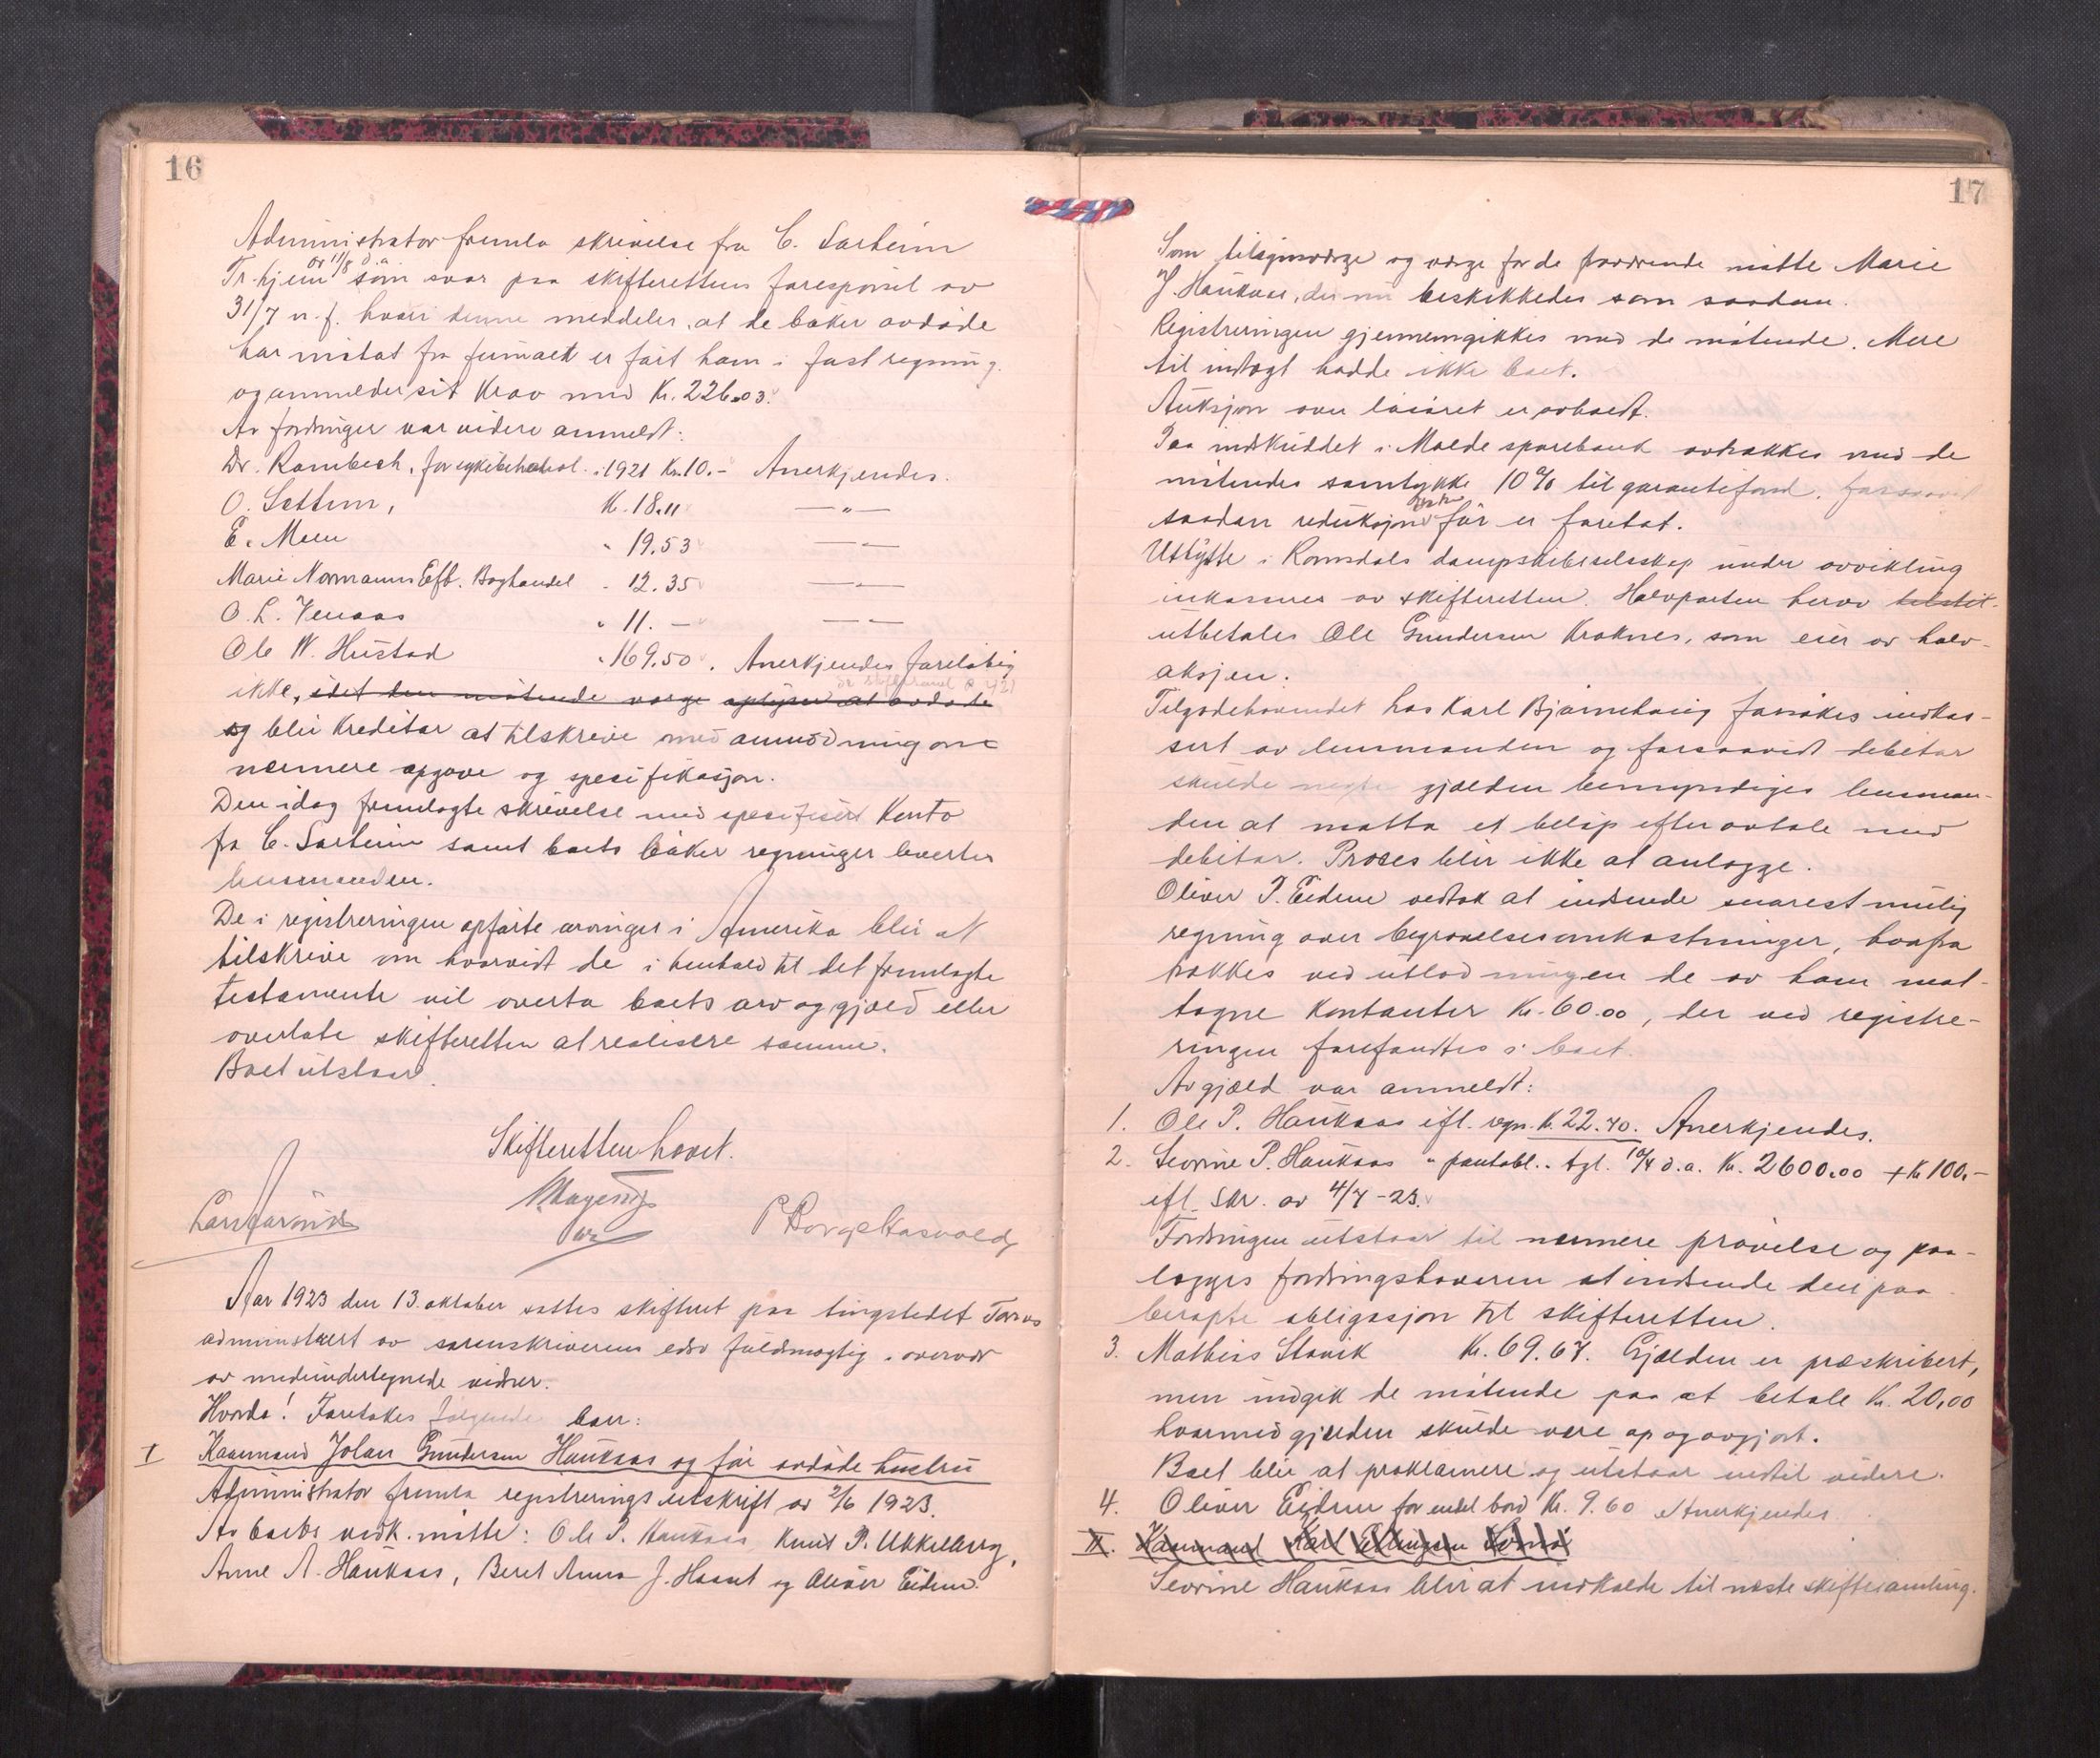 16
Administrator fremla skrivelse fra C. Sarheim
av 11/8 d.a.
Tr.hjem som svar paa skifterettens forespørsel av
31/7 n.f. hvori denne meddeler, at de bøker avdøde
har mottat fra firmaet er ført ham i fast regning.
og anmelder sit krav med Kr. 226.03.
Av fordringer var videre anmeldt:
Dr. Rambech, for sykebehandl. i 1921 Kr. 10.- Anerkjendes.
O. Settem, Kr. 18.11 —"—
E. Meen " 19.53 —"—
Marie Normanns Eft. Boghandel - 12.35 —"—
O. L. Venaas " 11.- —"—
Ole W. Hustad " 169.50. Anerkjendes foreløbig
ikke, idet den møtende verge oplyser at avdøde
og blir kreditor at tilskrive med anmodning om
nærmere opgave og spesifikasjon.
Den idag fremlagte skrivelse med spesifisert konto
fra C. Sarheim samt boets bøker regninger leveres
lensmanden.
De i registreringen opførte arvinger i Amerika blir at
tilskrive om hvorvidt de i henhold til det fremlagte
testamente vil overta boets arv og gjæld eller
overlate skifteretten at realisere samme.
Boet utstaar.
Skifteretten hævet.
Aar 1923 den 13. oktober sattes skifteret paa tingstedet Tornes
administrert av sorenskriverens edsv fuldmægtig i overvær
av medundertegnede vidner.
Hvorda! Foretokes følgende boer:
I Kaarmand Johan Gundersen Haukaas og før avdøde hustru
Administrator fremla registreringsutskrift av 2/6 1923.
Av boets vedk. møtte: Ole P. Haukaas, Knut P. Ukkelberg,
Anne A. Haukaas, Beret Anna J. Haaset og Oliver Eidem.
17
Som tilsynsverge og verge for de fraværende møtte Marie
J. Haukaas, der nu beskikkedes som saadan.
Registreringen gjennemgikkes med de møtende. Mere
til indtægt hadde ikke boet.
Auksjon over løsøret er avholdt.
Paa indskuddet i Molde sparebank avtrækkes med de
møtendes samtykke 10% til garantifond, forsaavidt
saadan reduksjon ikke før er foretat.
Utbytte i Romsdals dampskibsselskap under avvikling
inkasseres av skifteretten. Halvparten herav tilstil-
utbetales Ole Gundersen Kraknes, som eier av halv-
aksjen.
Tilgodehavendet hos Karl Bjørnehaug forsøkes indkas-
sert av lensmanden og forsaavidt debitor
skulde negte gjælden bemyndiges lensman-
den at motta et beløp efter avtale med
debitor. Proces blir ikke at anlægge.
Oliver P. Eidem vedtok at indsende snarest mulig
regning over begravelsesomkostninger, hvorfra
trækkes ved utlodningen de av ham mot-
tagne kontanter Kr. 60.00, der ved registre-
ringen forefandtes i boet.
Av gjæld var anmeldt:
1. Ole P. Haukaas ifl. regn. Kr. 22.40. Anerkjendes.
2. Severine P. Haukaas " pantobl. tgl. 10/4 d.a. Kr. 2600.00 + Kr 100.-
ifl. skr. av 4/7-23.
Fordringen utstaar til nærmere prøvelse og paa-
lægges fordringshaveren at indsende den paa
beropte obligasjon til skifteretten.
3. Mathias Stavik Kr. 69.67. Gjælden er præskribert,
men indgik de møtende paa at betale Kr. 20,00
hvormed gjælden skulde være op og avgjort.
Boet blir at proklamere og utstaar indtil videre.
4. Oliver Eidem for endel bord Kr. 9.60 Anerkjendes.
II. Kaarmand Karl Ellingsen
Severine Haukaas blir at indkalde til næste skiftesamling.